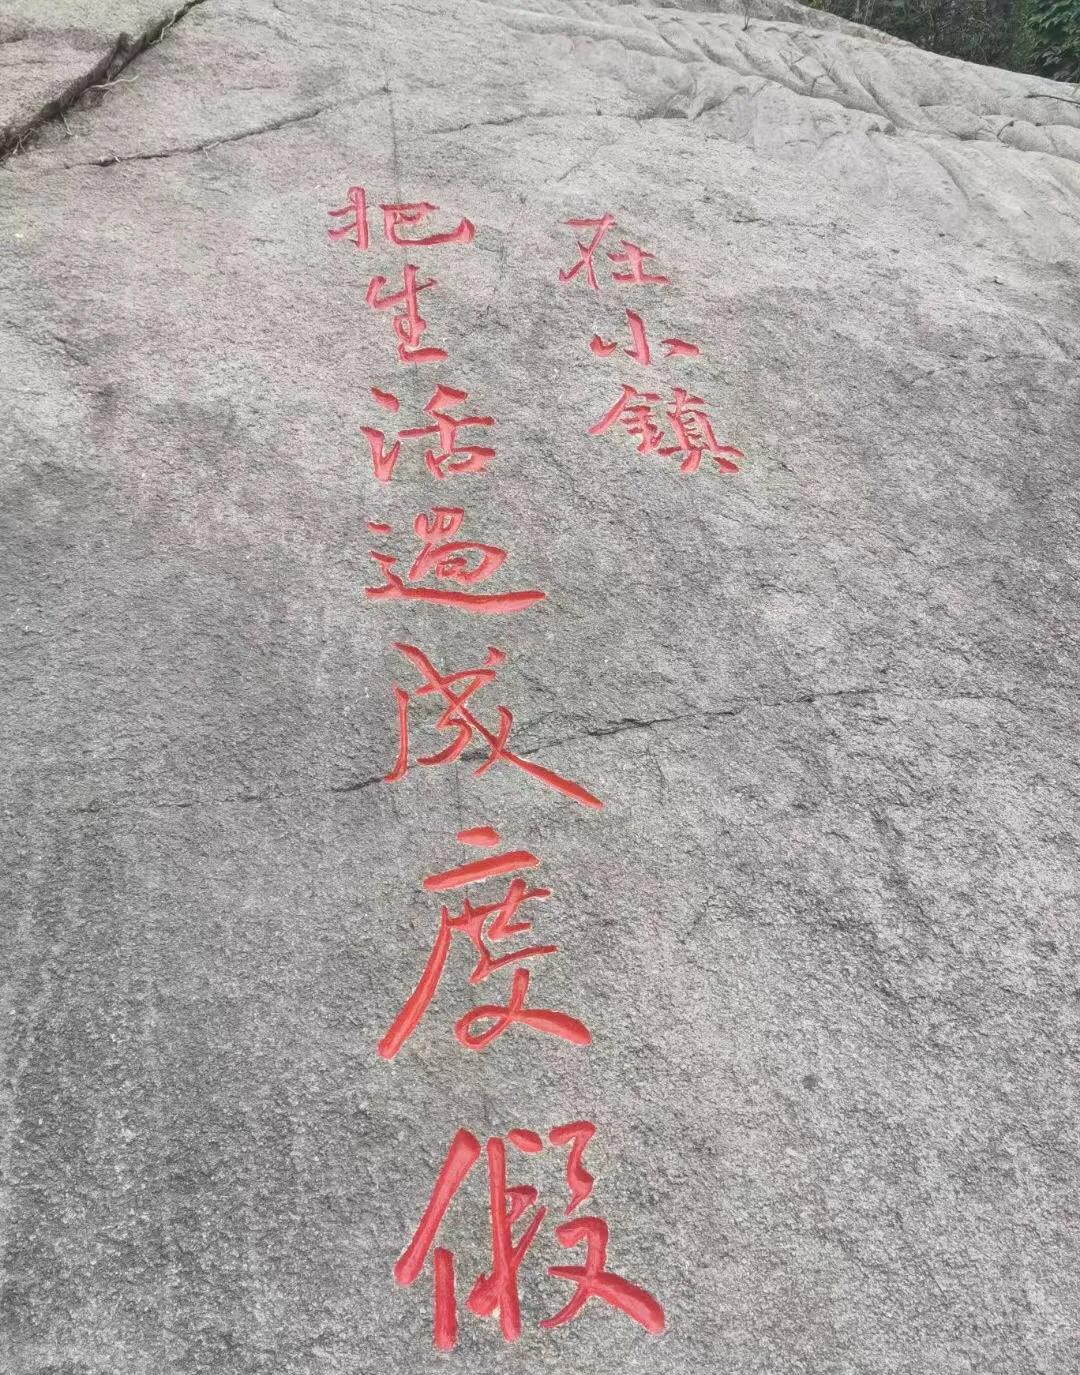 在小鎮
把生活過成度假